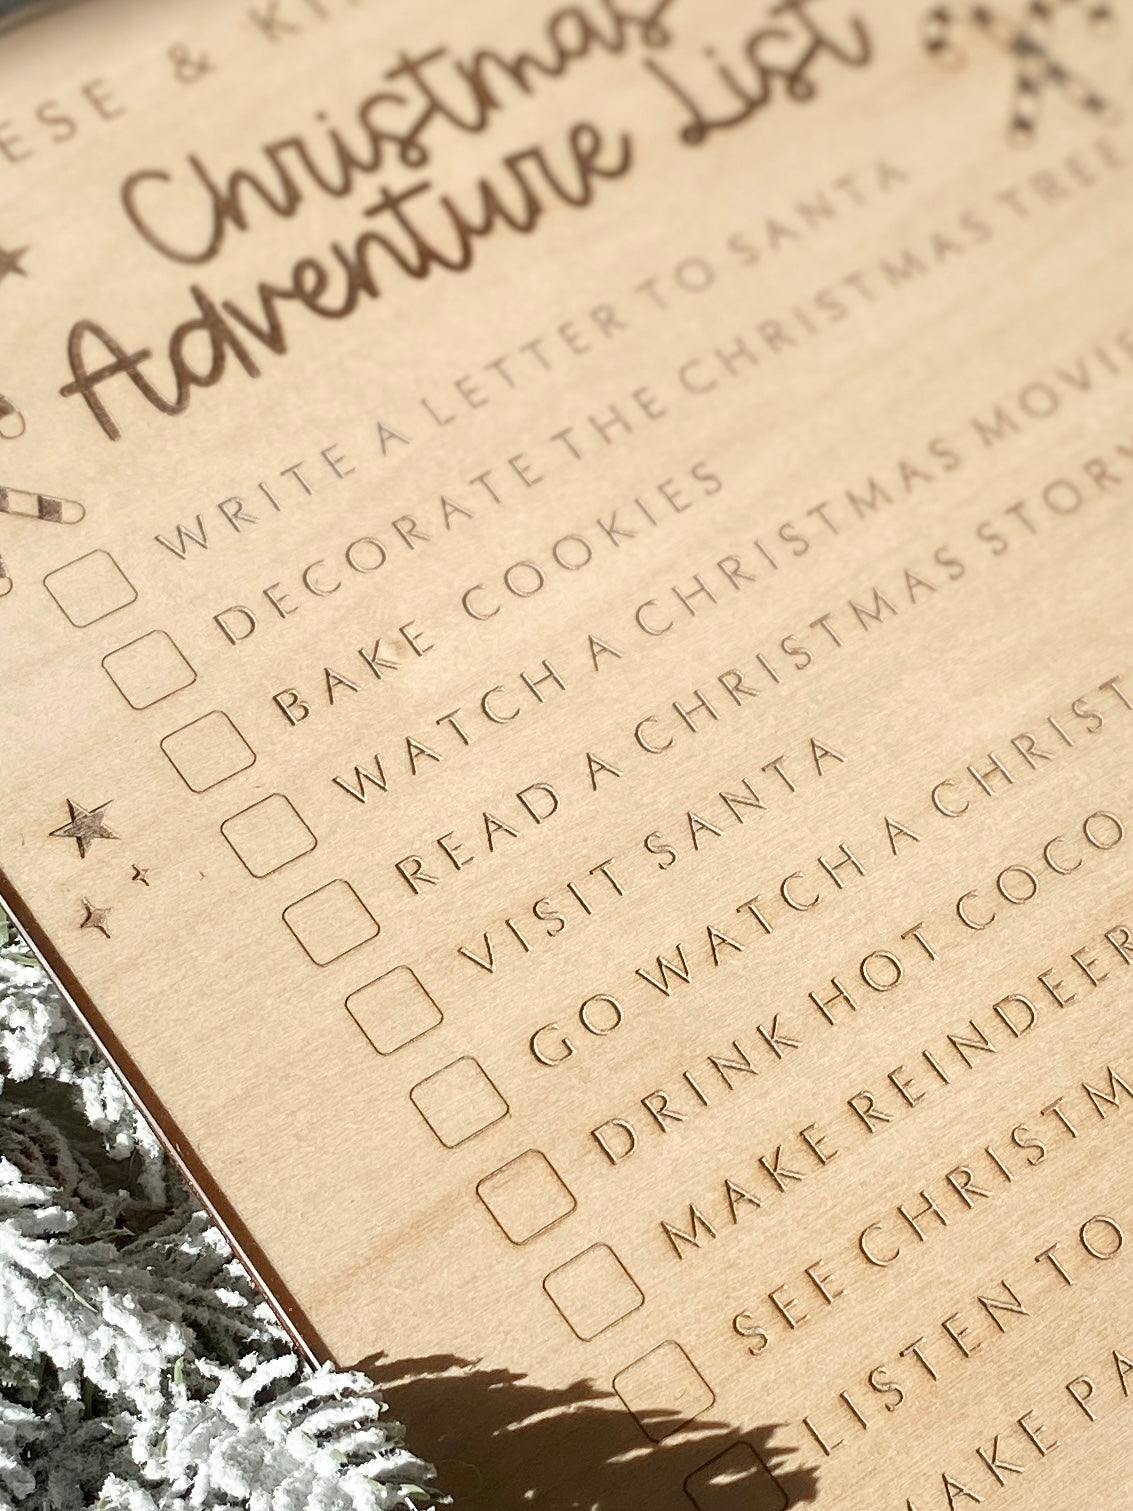 ESE & KI
Christmas
Adventure List
WRITE A LETTER TO SANTA
DECORATE THE CHRISTMAS TREE
BAKE COOKIES
WATCH A CHRISTMAS MOVIE
READ A CHRISTMAS STORY
VISIT SANTA
GO WATCH A CHRIST
DRINK HOT COCO
MAKE REINDEER
SEE CHRISTM
LISTEN TO
AKE PA